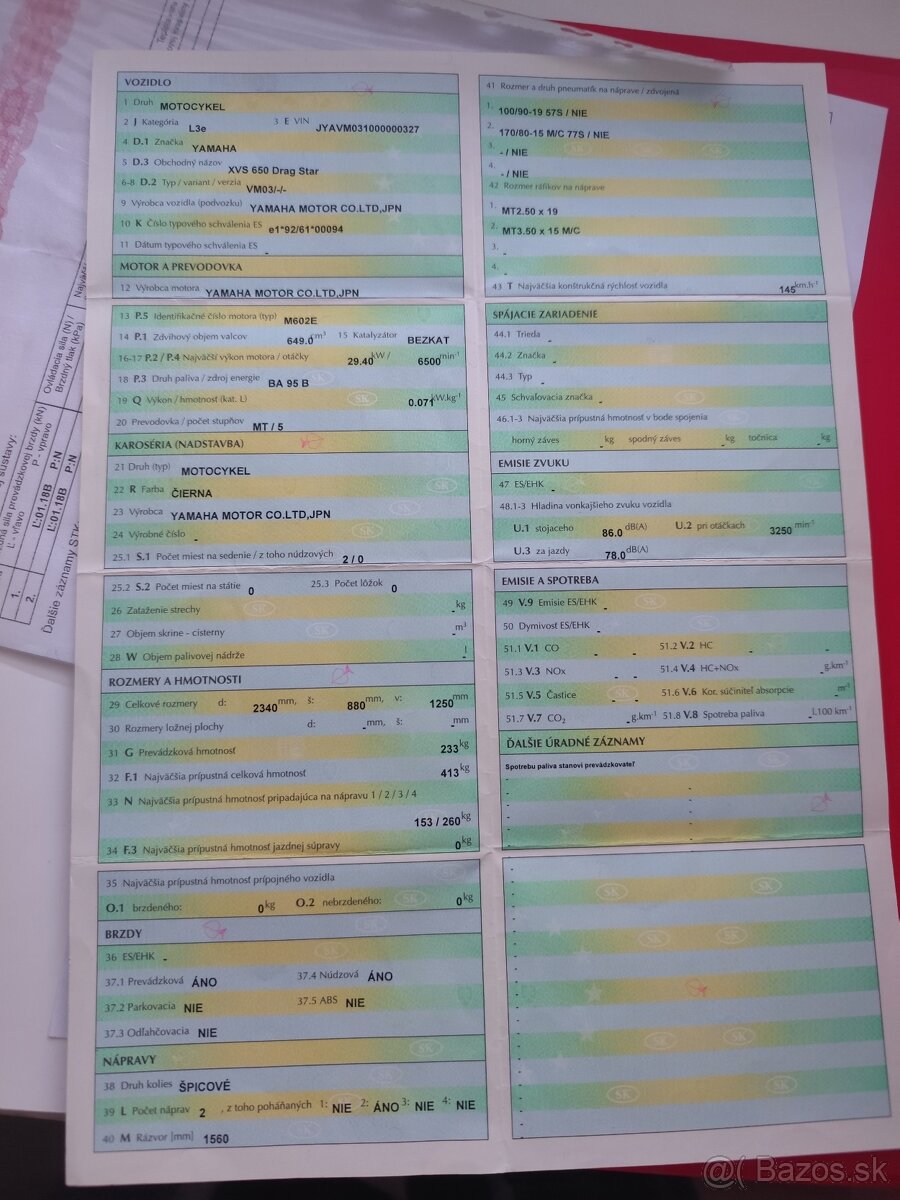 VOZIDLO
1 Druh MOTOCYKEL
2 J Kategória L3e 3 E VIN JYAVM031000000327
4 D.1 Značka YAMAHA
5 D.3 Obchodný názov XVS 650 Drag Star
6-8 D.2 Typ / variant / verzia VM03/-/-
9 Výrobca vozidla (podvozku) YAMAHA MOTOR CO.LTD,JPN
10 K Číslo typového schválenia ES e1*92/61*00094
11 Dátum typového schválenia ES -
MOTOR A PREVODOVKA
12 Výrobca motora YAMAHA MOTOR CO.LTD,JPN
13 P.5 Identifikačné číslo motora (typ) M602E
14 P.1 Zdvihový objem valcov 649.0 cm³ 15 Katalyzátor BEZKAT
16-17 P.2 / P.4 Najväčší výkon motora / otáčky 29.40 kW / 6500 min⁻¹
18 P.3 Druh paliva / zdroj energie BA 95 B
19 Q Výkon / hmotnosť (kat. L) 0.071 kW.kg⁻¹
20 Prevodovka / počet stupňov MT / 5
KAROSÉRIA (NADSTAVBA)
21 Druh (typ) MOTOCYKEL
22 R Farba ČIERNA
23 Výrobca YAMAHA MOTOR CO.LTD,JPN
24 Výrobné číslo -
25.1 S.1 Počet miest na sedenie / z toho núdzových 2 / 0
25.2 S.2 Počet miest na státie 0 25.3 Počet lôžok 0
26 Zaťaženie strechy - kg
27 Objem skrine - cisterny - m³
28 W Objem palivovej nádrže - l
ROZMERY A HMOTNOSTI
29 Celkové rozmery d: 2340 mm, š: 880 mm, v: 1250 mm
30 Rozmery ložnej plochy d: - mm, š: - mm
31 G Prevádzková hmotnosť 233 kg
32 F.1 Najväčšia prípustná celková hmotnosť 413 kg
33 N Najväčšia prípustná hmotnosť pripadajúca na nápravu 1 / 2 / 3 / 4
153 / 260 kg
34 F.3 Najväčšia prípustná hmotnosť jazdnej súpravy 0 kg
35 Najväčšia prípustná hmotnosť prípojného vozidla
O.1 brzdeného: 0 kg O.2 nebrzdeného: 0 kg
BRZDY
36 ES/EHK -
37.1 Prevádzková ÁNO 37.4 Núdzová ÁNO
37.2 Parkovacia NIE 37.5 ABS NIE
37.3 Odľahčovacia NIE
NÁPRAVY
38 Druh kolies ŠPICOVÉ
39 L Počet náprav 2 , z toho poháňaných 1: NIE 2: ÁNO 3: NIE 4: NIE
40 M Rázvor [mm] 1560
41 Rozmer a druh pneumatík na náprave / zdvojená
1. 100/90-19 57S / NIE
2. 170/80-15 M/C 77S / NIE
3. - / NIE
4. - / NIE
42 Rozmer ráfikov na náprave
1. MT2.50 x 19
2. MT3.50 x 15 M/C
3. -
4. -
43 T Najväčšia konštrukčná rýchlosť vozidla 145 km.h⁻¹
SPÁJACIE ZARIADENIE
44.1 Trieda -
44.2 Značka -
44.3 Typ -
45 Schvaľovacia značka -
46.1-3 Najväčšia prípustná hmotnosť v bode spojenia
horný záves - kg spodný záves - kg točnica - kg
EMISIE ZVUKU
47 ES/EHK -
48.1-3 Hladina vonkajšieho zvuku vozidla
U.1 stojaceho 86.0 dB(A) U.2 pri otáčkach 3250 min⁻¹
U.3 za jazdy 78.0 dB(A)
EMISIE A SPOTREBA
49 V.9 Emisie ES/EHK -
50 Dymivosť ES/EHK -
51.1 V.1 CO - - 51.2 V.2 HC - -
51.3 V.3 NOx - - 51.4 V.4 HC+NOx - g.km⁻¹
51.5 V.5 Častice - - 51.6 V.6 Kor. súčiniteľ absorpcie - m⁻¹
51.7 V.7 CO₂ - g.km⁻¹ 51.8 V.8 Spotreba paliva - l.100 km⁻¹
ĎALŠIE ÚRADNÉ ZÁZNAMY
Spotrebu paliva stanoví prevádzkovateľ
Ovládacia sila (N) /
Brzdný tlak (kPa)
sila prevádzkovej brzdy (kN)
Ľ - vľavo P - vpravo
1. Ľ:01.18B P:N
2. Ľ:01.18B P:N
Ďalšie záznamy STK
@( Bazos.sk